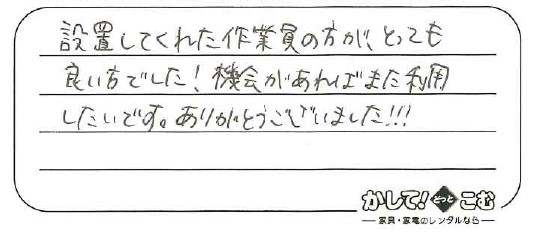 設置してくれた作業員の方が、とっても
良い方でした！機会があればまた利用
したいです。ありがとうございました!!!
かして!どっとこむ
家具・家電のレンタルなら